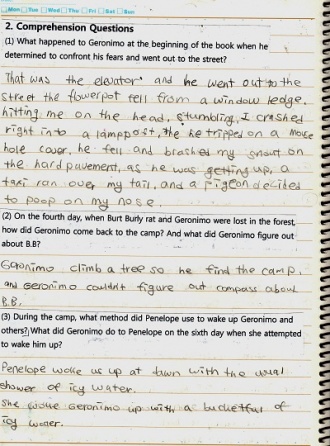 Mon Tue Wed Thu Fri Sat Sun
2. Comprehension Questions
(1) What happened to Geronimo at the beginning of the book when he
determined to confront his fears and went out to the street?
That was the elevator and he went out to the
street the flowerpot fell from a window ledge,
hitting me on the head, stumbling, I crashed
right into a lamppost, the he tripped on a mouse
hole cover, he fell and brashed my snout on
the hard pavement, as he was getting up, a
taxi ran over my tail, and a pigeon decided
to poop on my nose.
(2) On the fourth day, when Burt Burly rat and Geronimo were lost in the forest,
how did Geronimo come back to the camp? And what did Geronimo figure out
about B.B?
Geronimo climb a tree so he find the camp.
and Geronimo couldn't figure out compass about
B.B.
(3) During the camp, what method did Penelope use to wake up Geronimo and
others? What did Geronimo do to Penelope on the sixth day when she attempted
to wake him up?
Penelope woke us up at dawn with the usual
shower of icy water.
She woke Geronimo up with a bucketful of
icy water.